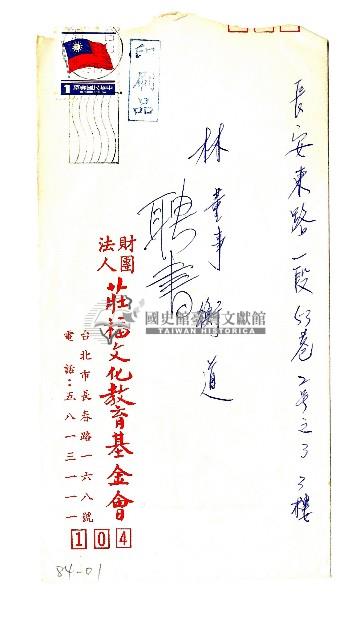 長安東路一段53巷2号之3 3樓
林董事衡道
聘書
印刷品
1
中華民國郵票
財團法人
莊福文化教育基金會
台北市長春路一六八號
電話：五八一三一一一
104
84-01
國史館臺灣文獻館
TAIWAN HISTORICA